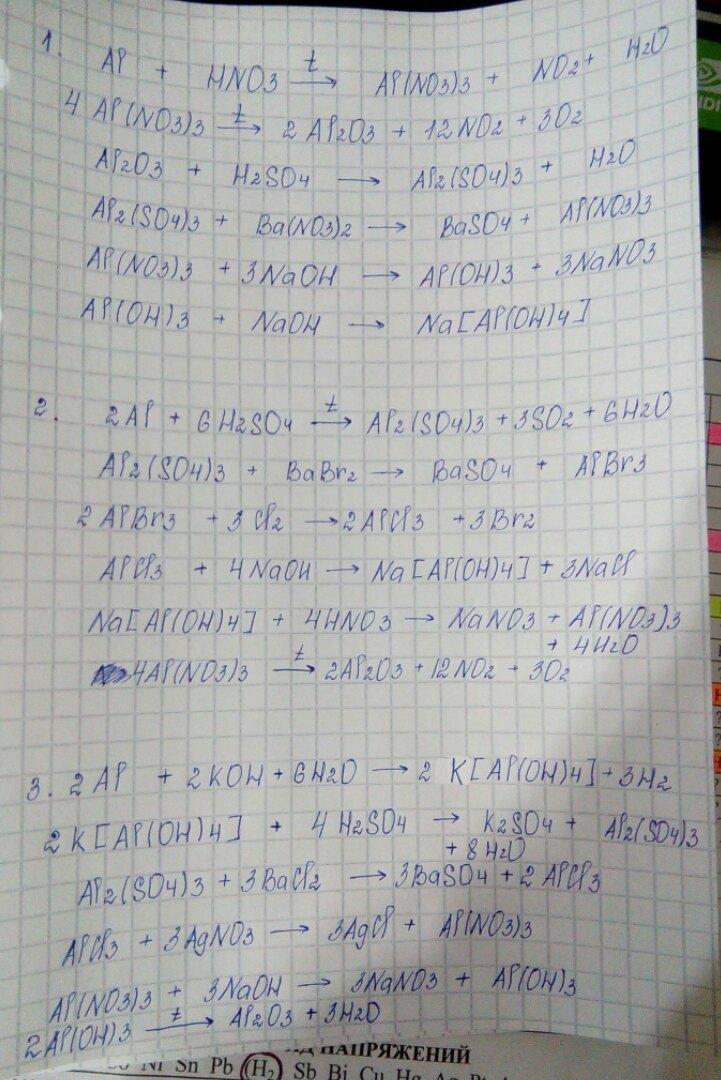 1. Al + HNO3 →t Al(NO3)3 + NO2 + H2O
4 Al(NO3)3 →t 2 Al2O3 + 12NO2 + 3O2
Al2O3 + H2SO4 → Al2(SO4)3 + H2O
Al2(SO4)3 + Ba(NO3)2 → BaSO4 + Al(NO3)3
Al(NO3)3 + 3NaOH → Al(OH)3 + 3NaNO3
Al(OH)3 + NaOH → Na[Al(OH)4]
2. 2Al + 6H2SO4 →t Al2(SO4)3 + 3SO2 + 6H2O
Al2(SO4)3 + BaBr2 → BaSO4 + AlBr3
2 AlBr3 + 3Cl2 → 2AlCl3 + 3Br2
AlCl3 + 4NaOH → Na[Al(OH)4] + 3NaCl
Na[Al(OH)4] + 4HNO3 → NaNO3 + Al(NO3)3
+ 4H2O
4Al(NO3)3 →t 2Al2O3 + 12NO2 + 3O2
3. 2 Al + 2KOH + 6H2O → 2 K[Al(OH)4] + 3H2
2K[Al(OH)4] + 4H2SO4 → K2SO4 + Al2(SO4)3
+ 8H2O
Al2(SO4)3 + 3BaCl2 → 3BaSO4 + 2AlCl3
AlCl3 + 3AgNO3 → 3AgCl + Al(NO3)3
Al(NO3)3 + 3NaOH → 3NaNO3 + Al(OH)3
2Al(OH)3 →t Al2O3 + 3H2O
НАПРЯЖЕНИЙ
Ni Sn Pb (H2) Sb Bi Cu Hg Ag